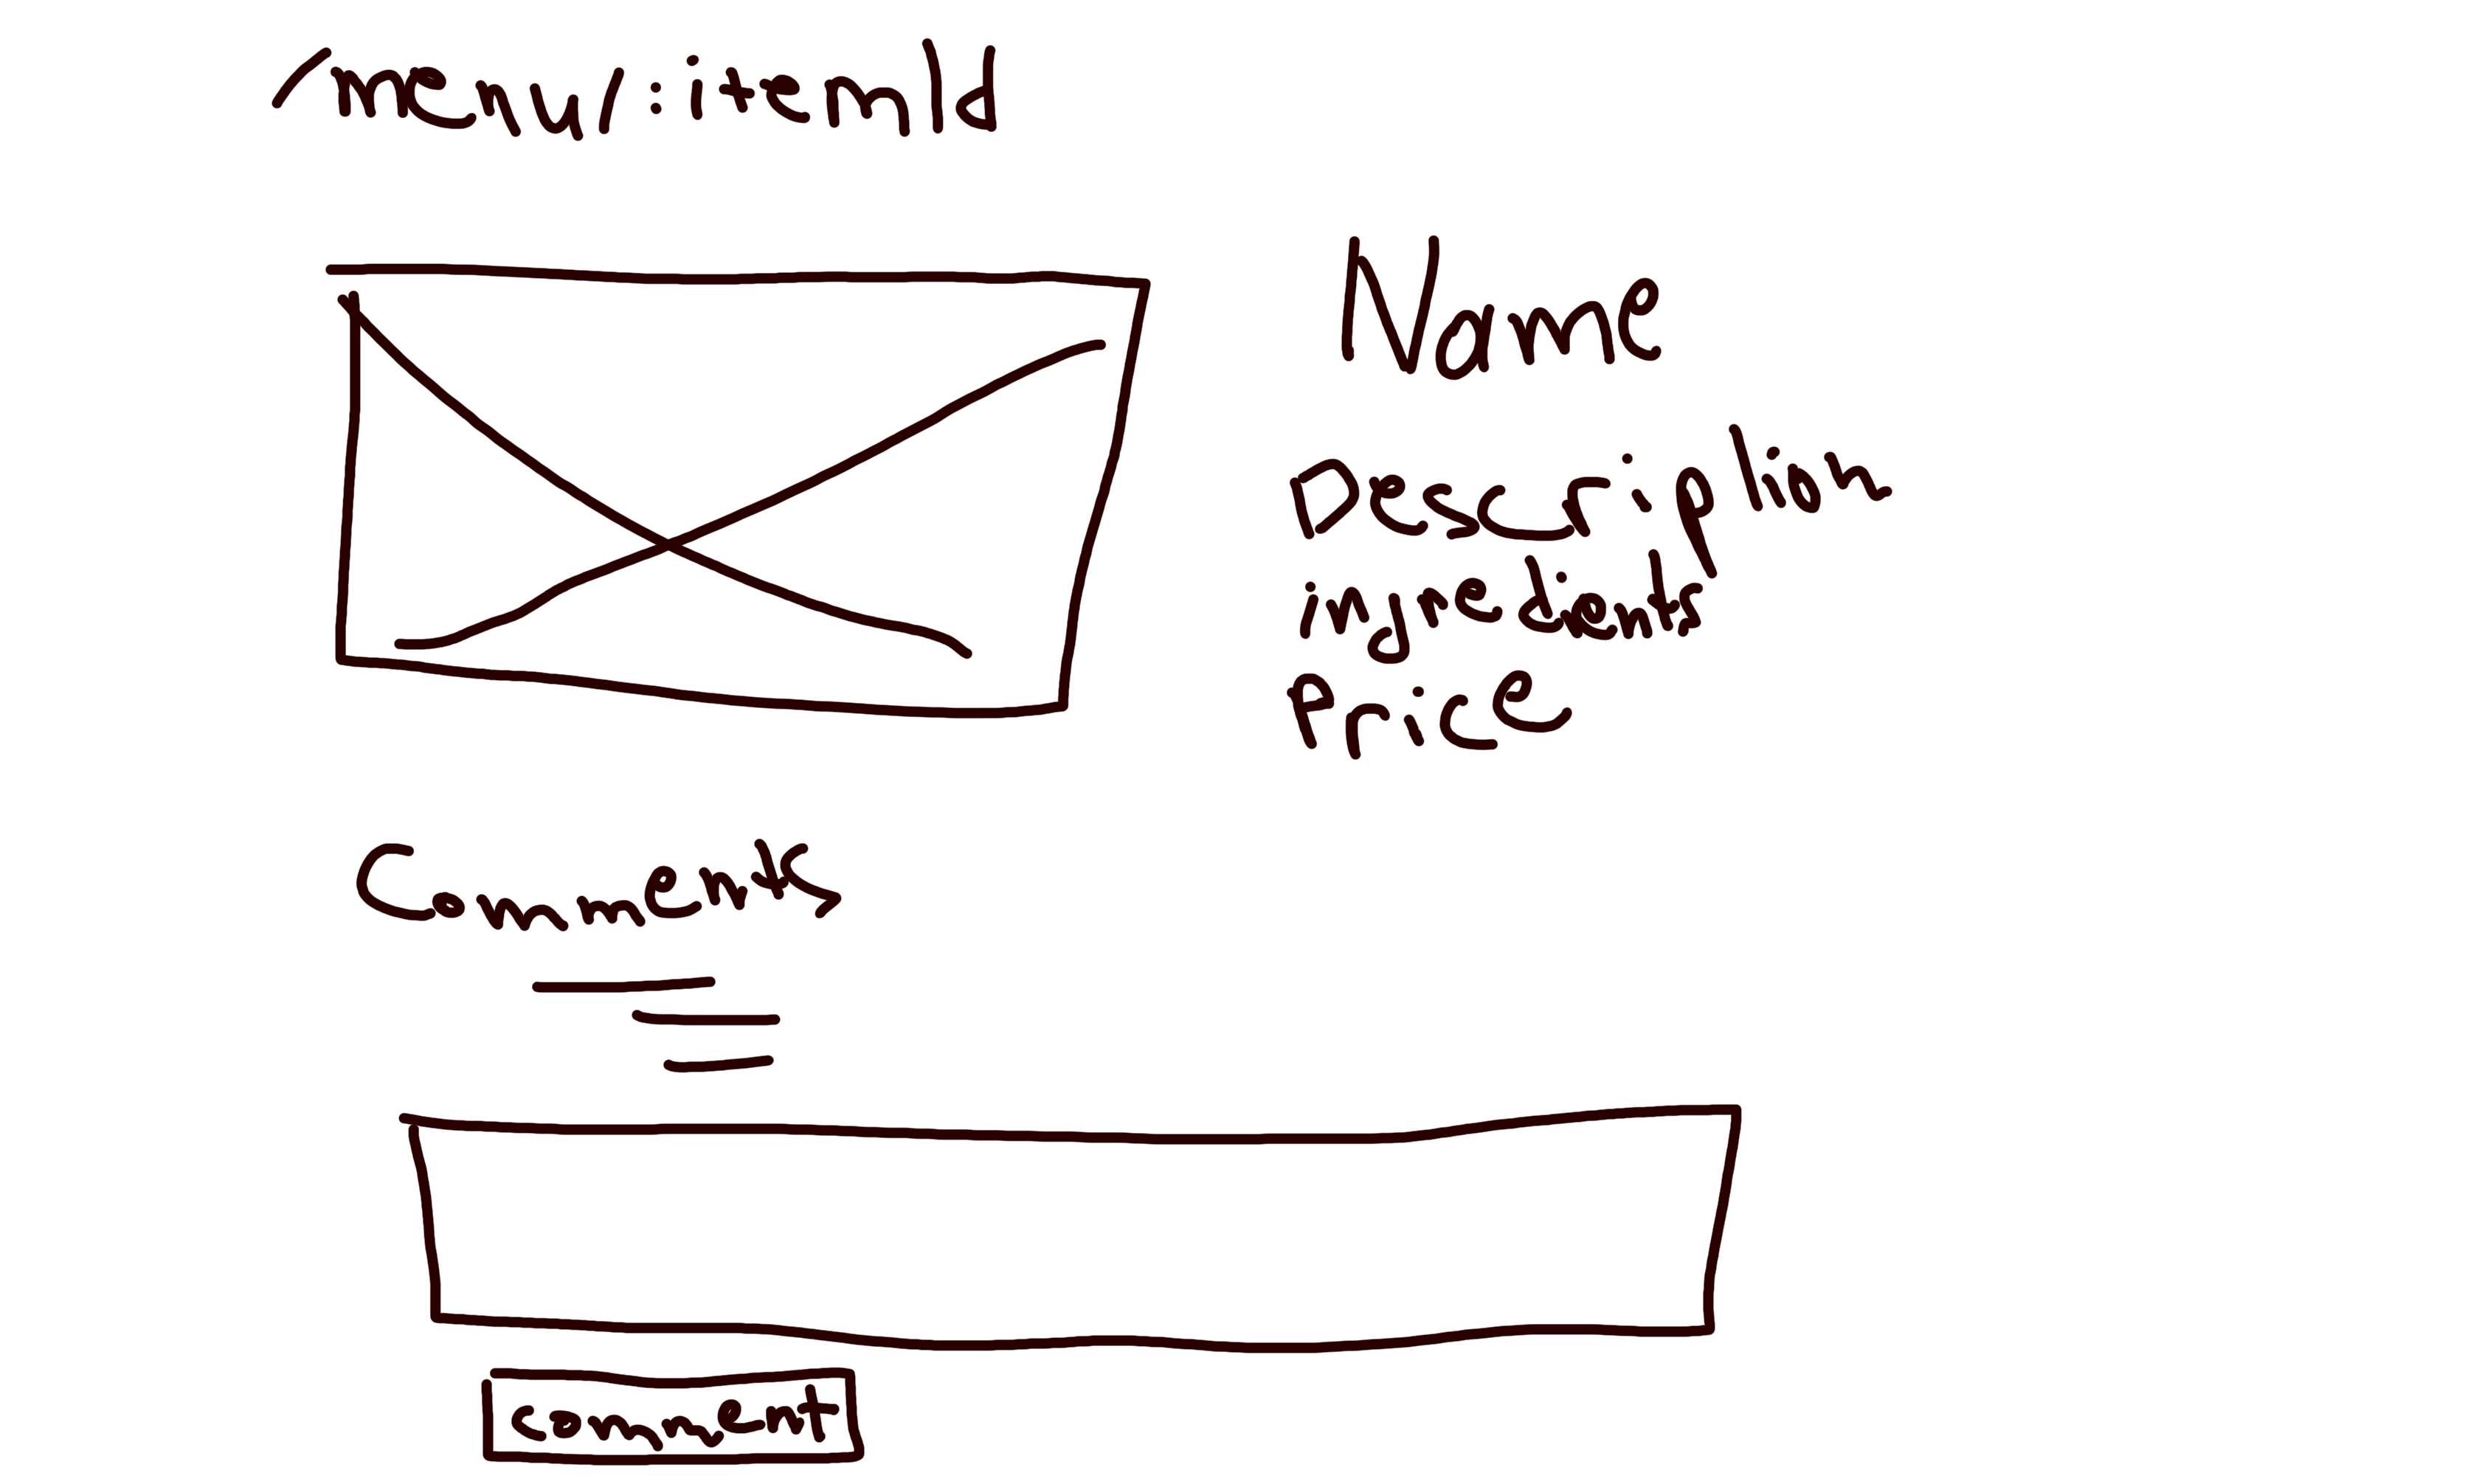 /menu/:itemId
Name
Description
ingredients
Price
Comments
comment